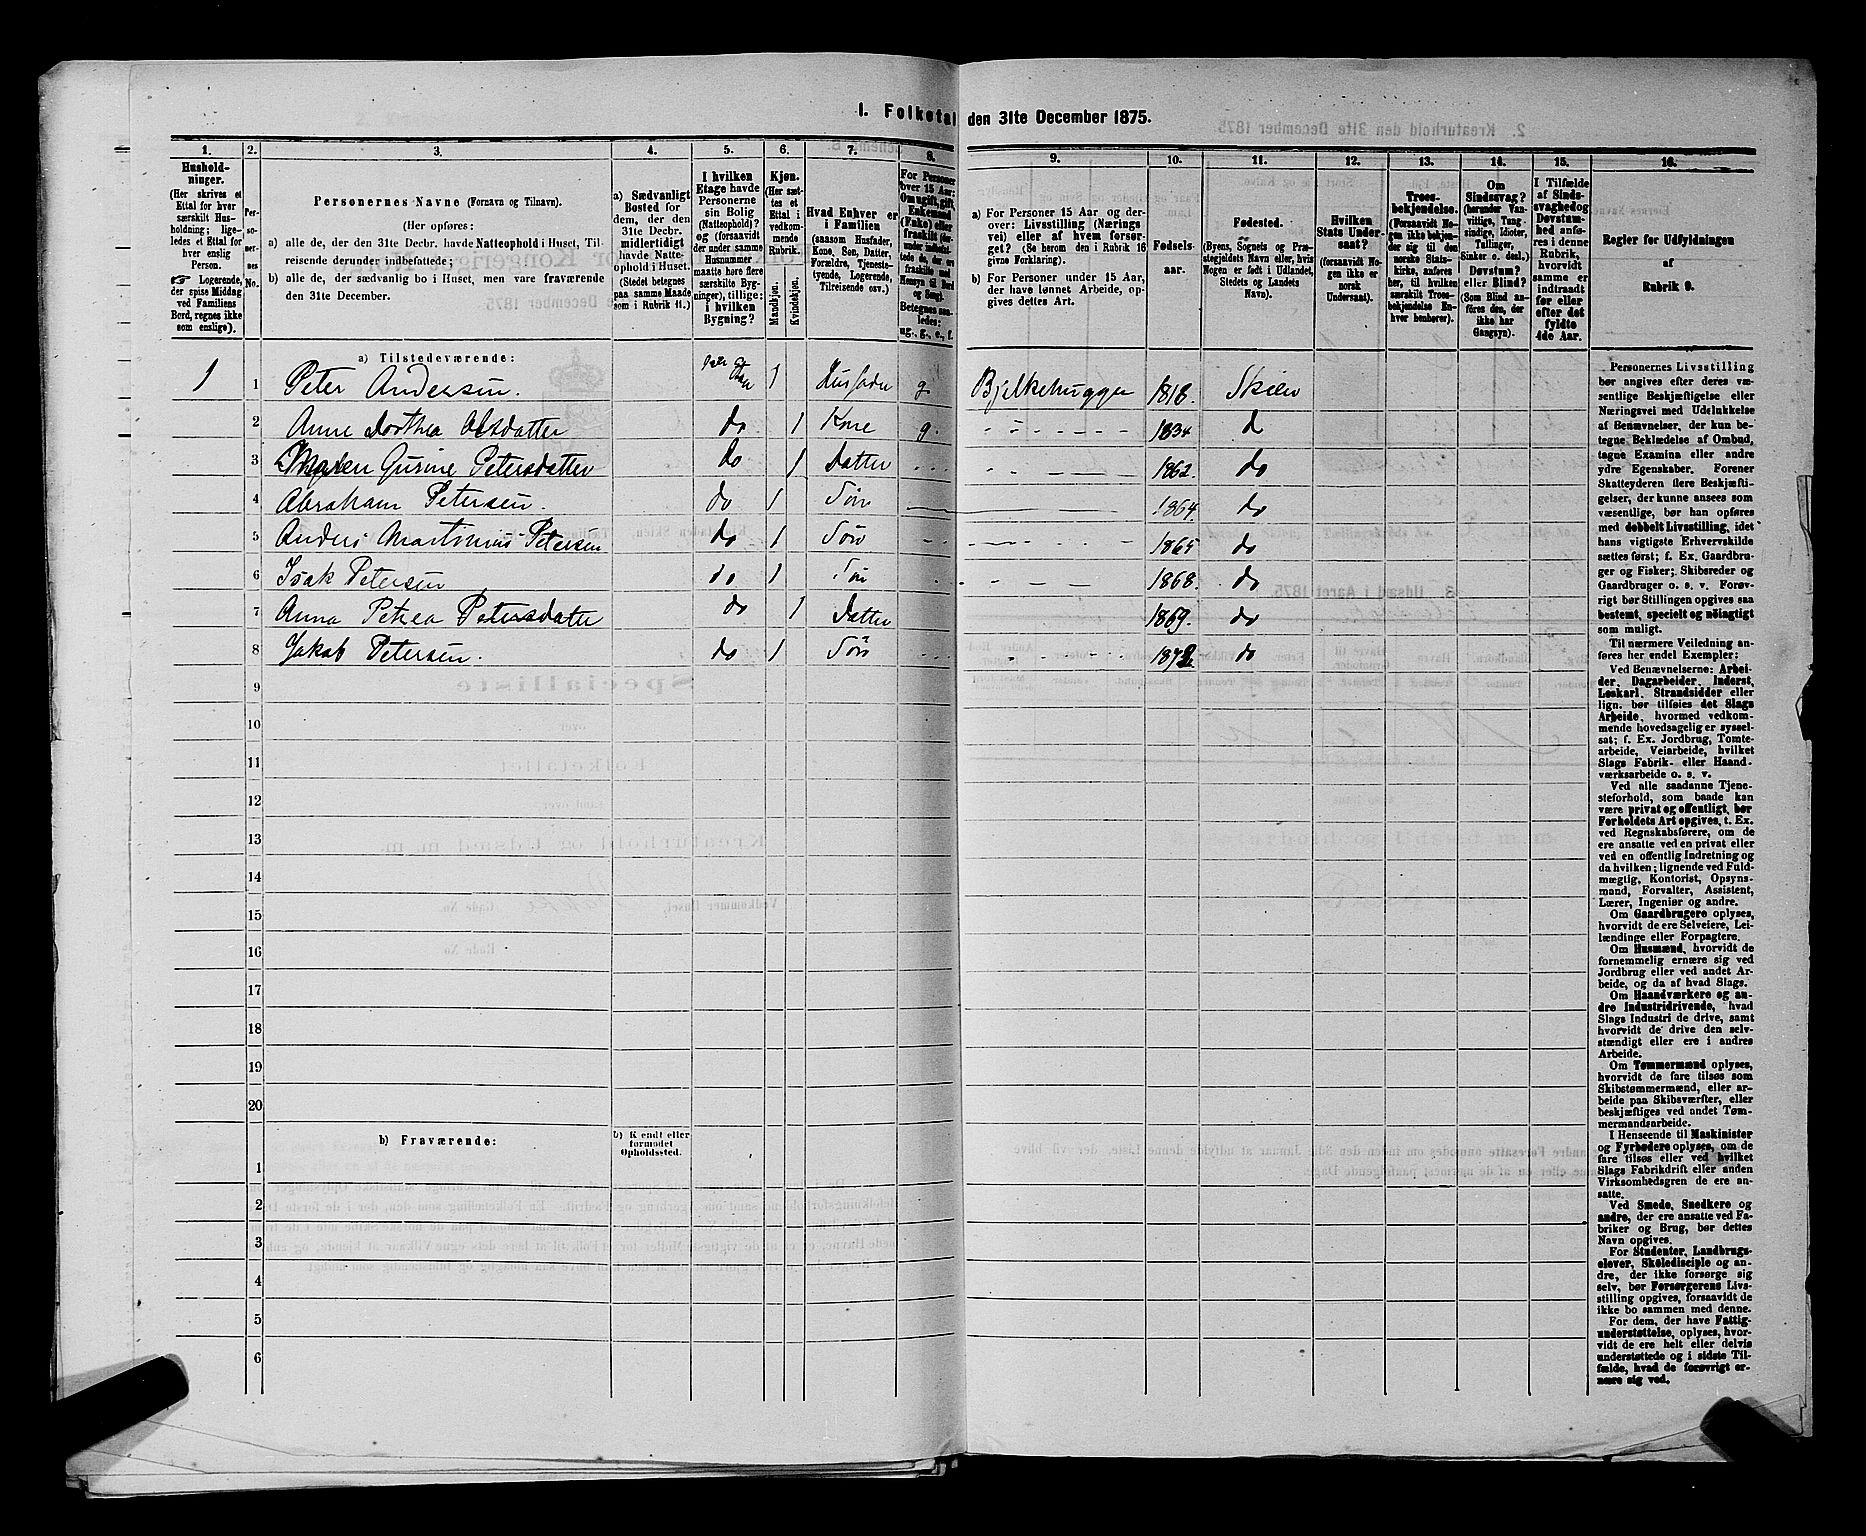 1. Folketal den 31te December 1875.
1. 2. 3. 4. 5. 6. 7. 8. 9. 10. 11. 12. 13. 14. 15. 16.
Hushold-
ninger.
(Her skrives et
Ettal for hver
særskilt Hus-
holdning; lige-
ledes et Ettal for
hver enslig
Person.
☞ Logerende,
der spise Middag
ved Familiens
Bord, regnes ikke
som enslige).
Per-
so-
ner-
nes
No.
Personernes Navne (Fornavn og Tilnavn).
(Her opføres:
a) alle de, der den 31te Decbr. havde Natteophold i Huset, Til-
reisende derunder indbefattede;
b) alle de, der sædvanlig bo i Huset, men vare fraværende
den 31te December.
a) Sædvanligt
Bosted for
dem, der den
31te Decbr.
midlertidigt
havde Natte-
ophold i Huset.
(Stedet betegnes
paa samme Maade
som i Rubrik 11.)
I hvilken
Etage havde
Personerne
sin Bolig
(Natteophold)?
og (forsaavidt
der under samme
Husnummer
maatte høre flere
særskilte Byg-
ninger), tillige:
i hvilken
Bygning?
Kjøn.
(Her sæt-
tes et
Ettal i
vedkom-
mende
Rubrik.
Mandkjøn.
Kvindekjøn.
Hvad Enhver er
i Familien
(saasom Husfader,
Kone, Søn, Datter,
Forældre, Tjeneste-
tyende, Logerende,
Tilreisende osv.)
For Personer
over 15 Aar:
Om ugift, gift,
Enkemand
(Enke) eller
fraskilt
Betegnes saa-
ledes:
ug., g., e., f.
a) For Personer 15 Aar og der-
over: Livsstilling (Nærings
vei) eller af hvem forsør-
get? (Se herom den i Rubrik 16
givne Forklaring).
b) For Personer under 15 Aar,
der have lønnet Arbeide, op-
gives dettes Art.
Fødsels-
aar.
Fødested.
(Byens, Sognets og Præ-
stegjeldets Navn eller, hvis
Nogen er født i Udlandet,
Stedets og Landets
Navn).
Hvilken
Stats Under-
saat?
(forsaavidt No-
gen ikke er
norsk
Undersaat).
Troes-
bekjendelse.
(Forsaavidt No-
gen ikke bekjen-
der sig til den
norske Stats-
kirke, anføres
her, til hvilken
særskilt Troes-
bekjendelse En-
hver henhører).
Om
Sindssvag?
(herunder Van-
vittige, Idioter,
Tullinger,
Sinker o. desl.)
Døvstum?
eller Blind?
(Som Blind an-
føres den, der
ikke har
Gangsyn).
I Tilfælde
af Sinds-
svaghed og
Døvstum-
hed anfø-
res i denne
Rubrik,
hvorvidt
samme er
indtraadt
før eller
efter det
fyldte
4de Aar.
Regler for Udfyldningen
af
Rubrik 9.
a) Tilstedeværende:
1 1 Peter Andersen. 1 Husfader g. Bjelkehugger 1818. Skien
2 Anne Dorthea Olsdatter do 1 Kone g. 1834 do
3 Maren Gurine Petersdatter do 1 Datter 1862. do
4 Abraham Petersen. do 1 Søn 1864. do
5 Anders Martinius Petersen do 1 Søn 1865 do
6 Isak Petersen do 1 Søn 1868. do
7 Anna Petrea Petersdatter do 1 Datter 1869. do
8 Jakob Petersen. do 1 Søn 1872 do
9
10
11
12
13
14
15
16
17
18
19
20
b) Fraværende:
b) Kendt eller
formodet
Opholdssted.
1
2
3
4
5
6
Personernes Livsstilling
bør angives efter deres væ-
sentlige Beskjæftigelse eller
Næringsvei med Udelukkelse
af Benævnelser, der kun be-
tegne Beklædelse af Ombud,
tagne Examina eller andre
ydre Egenskaber. Forener
Skatteyderen flere Beskjæfti-
gelser, der kunne ansees som
væsentlige, bør han opføres
med dobbelt Livsstilling, idet
hans vigtigste Erhvervskilde
sættes først; f. Ex. Gaardbru-
ger og Fisker; Skibsreder og
Gaardbruger o. s. v. Forøv-
rigt bør Stillingen opgives saa
bestemt, specielt og nøiagtigt
som muligt.
Til nærmere Veiledning an-
føres her endel Exempler:
Ved Benævnelserne: Arbei-
der, Dagarbeider, Inderst,
Løskarl, Strandsidder eller
lign. bør tilføies det Slags
Arbeide, hvormed vedkom-
mende hovedsagelig er syssel-
sat; f. Ex. Jordbrug, Tomte-
arbeide, Veiarbeide, hvilket
Slags Fabrik- eller Haand-
værksarbeide o. s. v.
Ved alle saadanne Tjene-
steforhold, som baade kan
være privat og offentligt, bør
Forholdets Art opgives, t. Ex.
ved Regnskabsførere, om de
ere ansatte ved en privat eller
ved en offentlig Indretning og
da hvilken; lignende ved Fuld-
mægtig, Kontorist, Opsyns-
mand, Forvalter, Assistent,
Lærer, Ingeniør og andre.
Om Gaardbrugere oplyses,
hvorvidt de ere Selveiere, Lei-
lændinge eller Forpagtere.
Om Husmænd, hvorvidt de
fornemmelig ernære sig ved
Jordbrug eller ved andet Ar-
beide, og da af hvad Slags.
Om Haandværkere og an-
dre Industridrivende, hvad
Slags Industri de drive, samt
hvorvidt de drive den selv-
stændigt eller ere i andres
Arbeide.
Om Tømmermænd oplyses,
hvorvidt de fare tilsøs som
Skibstømmermænd, eller ar-
beide paa Skibsværfter, eller
beskjæftiges ved andet Tøm-
mermandsarbeide.
I Henseende til Maskinister
og Fyrbødere oplyses, om de
fare tilsøs eller ved hvilket
Slags Fabrikdrift eller anden
Virksomhedsgren de ere an-
satte.
Ved Smede, Snedkere og
andre, der ere ansatte ved Fa-
briker og Brug, bør dettes
Navn opgives.
For Studenter, Landbrugs-
elever, Skoledisciple og an-
dre, der ikke forsørge sig
selv, bør Forsørgerens Livs-
stilling opgives, forsaavidt de
ikke bo sammen med denne.
For dem, der have Fattig-
understøttelse, oplyses, hvor-
vidt de ere helt eller delvis
understøttede og i sidste Til-
fælde, hvad de forøvrigt er-
nære sig ved.